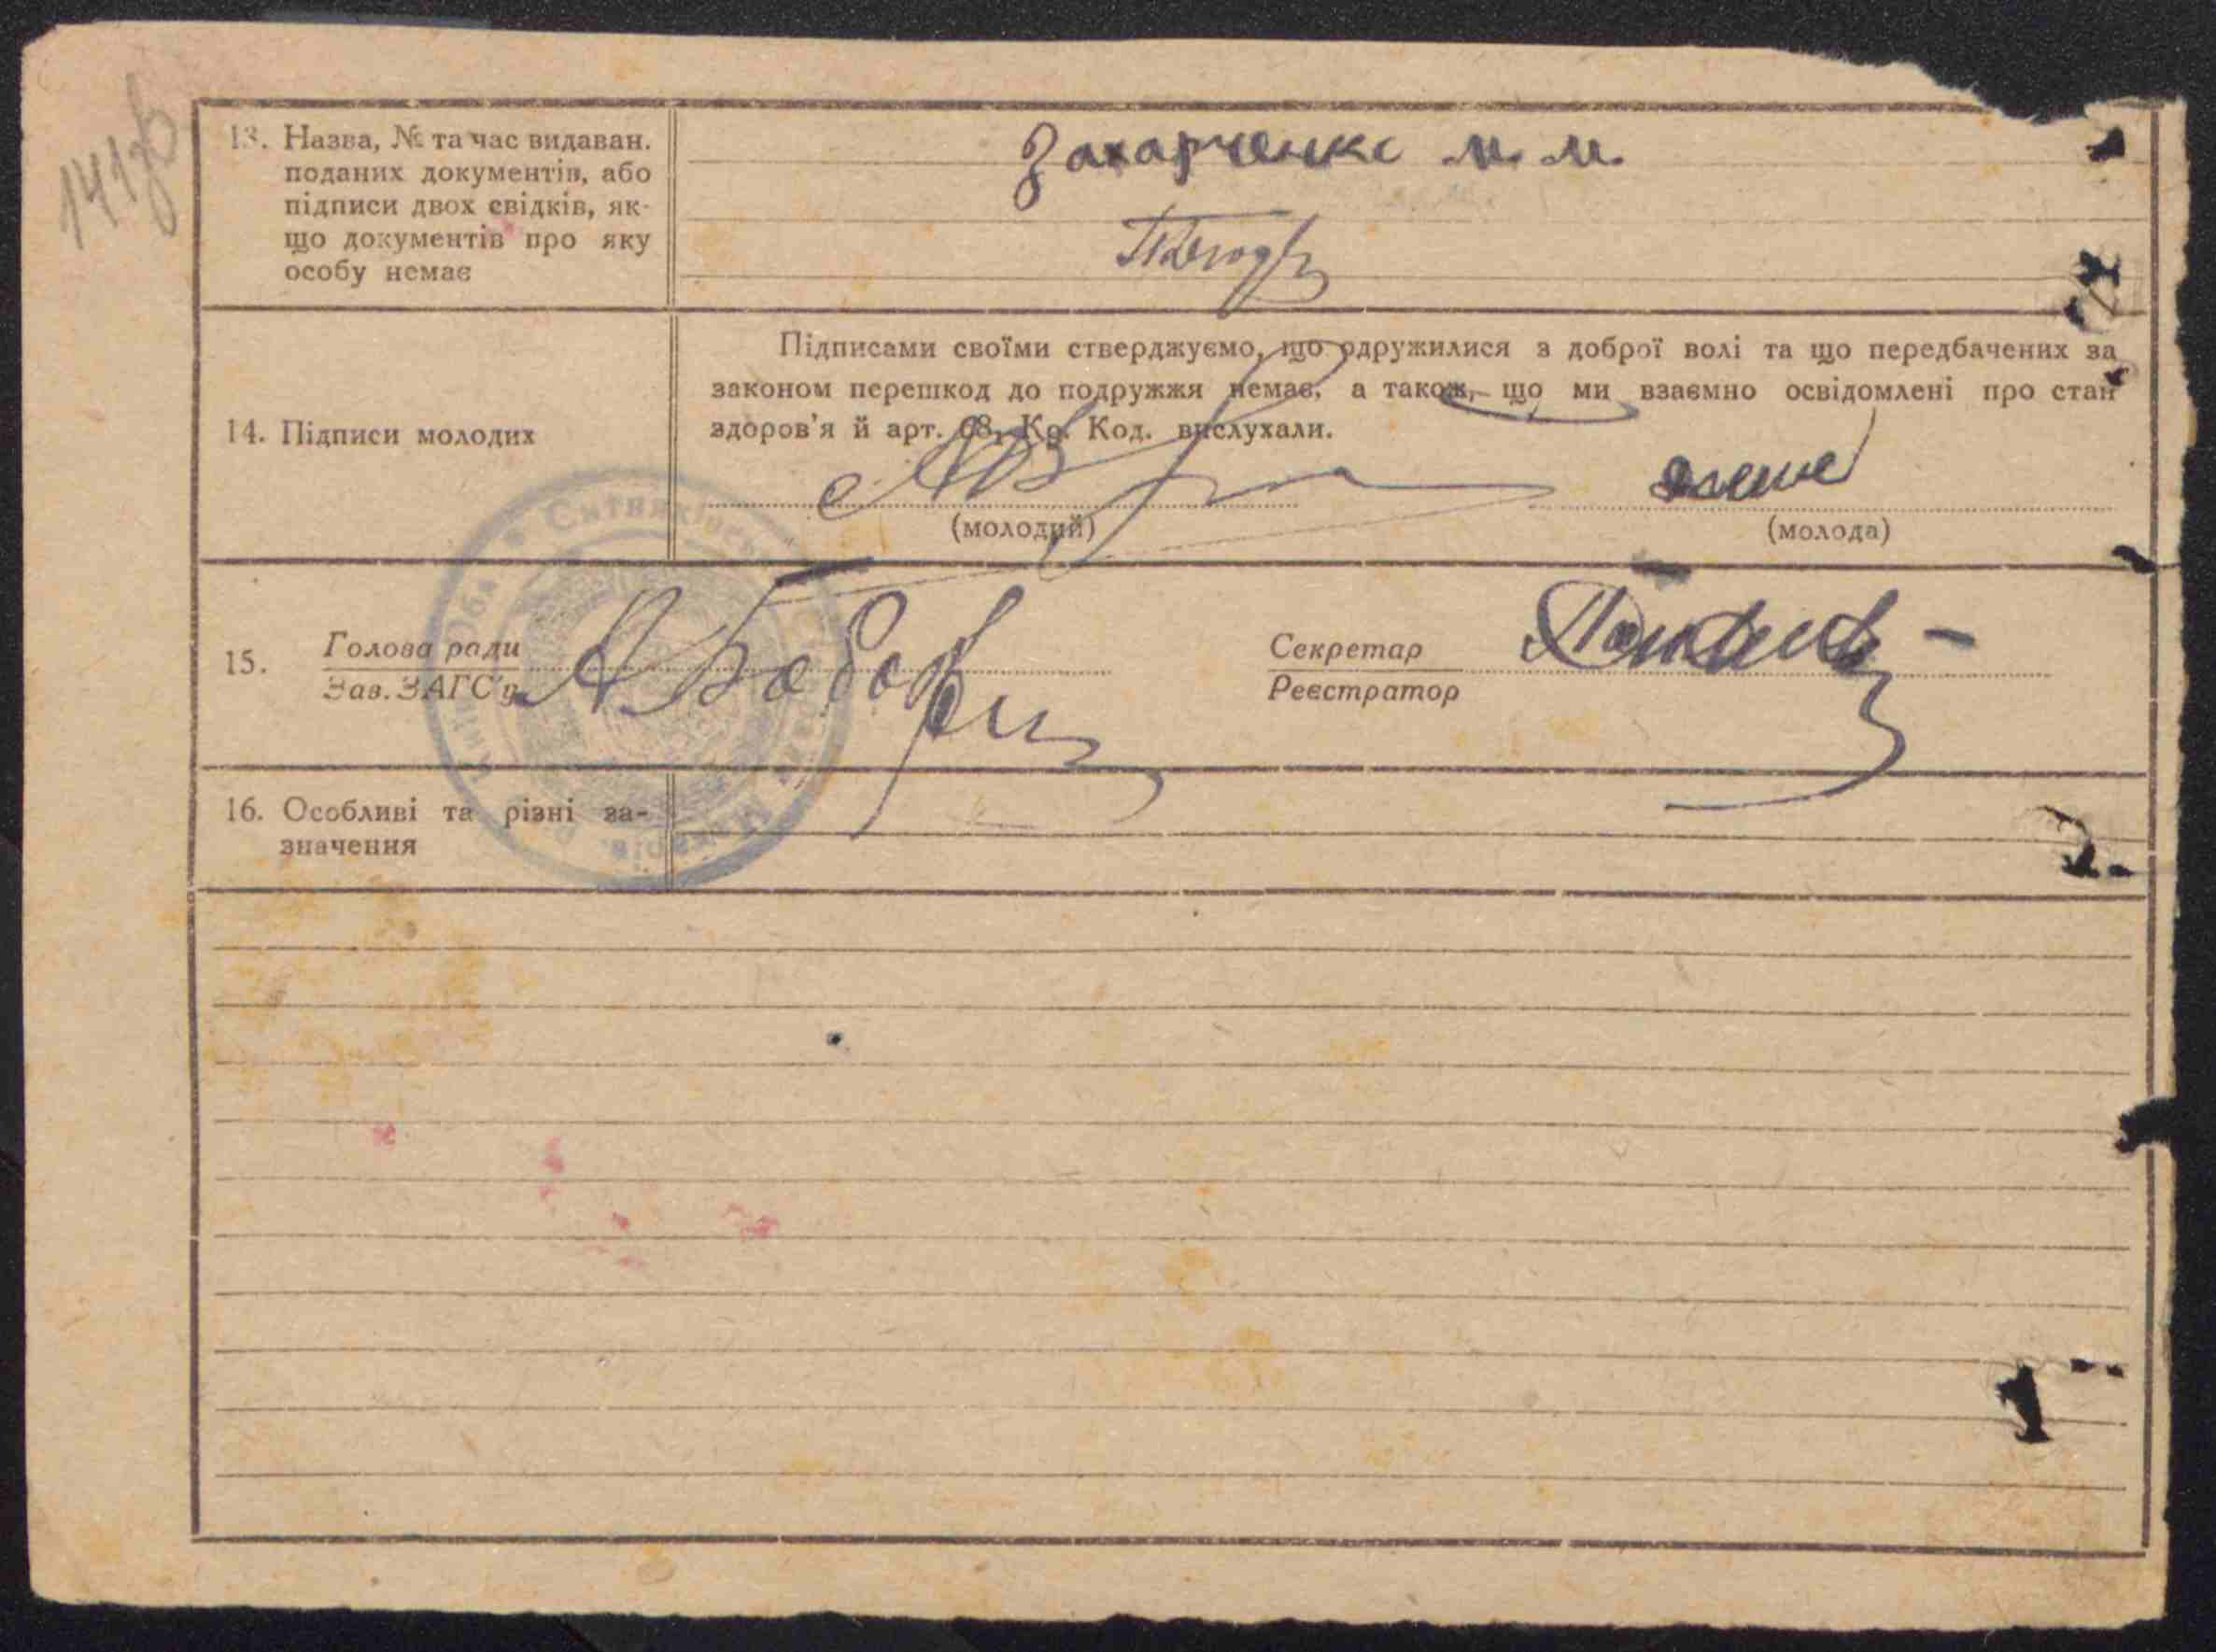 13. Назва, № та час видаван.
поданих документів, або
підписи двох свідків, як-
що документів про яку
особу немає
Захарченко М. М.
14. Підписи молодих
Підписами своїми стверджуємо, що одружилися з доброї волі та що передбачених за
законом перешкод до подружжя немає, а також, що ми взаємно освідомлені про стан
здоров'я й арт. 68, Кр. Код. вислухали.
(молодий)
(молода)
15.
Голова ради
Зав. ЗАГС'у
А Бобор
Секретар
Реєстратор
16. Особливі та різні за-
значення